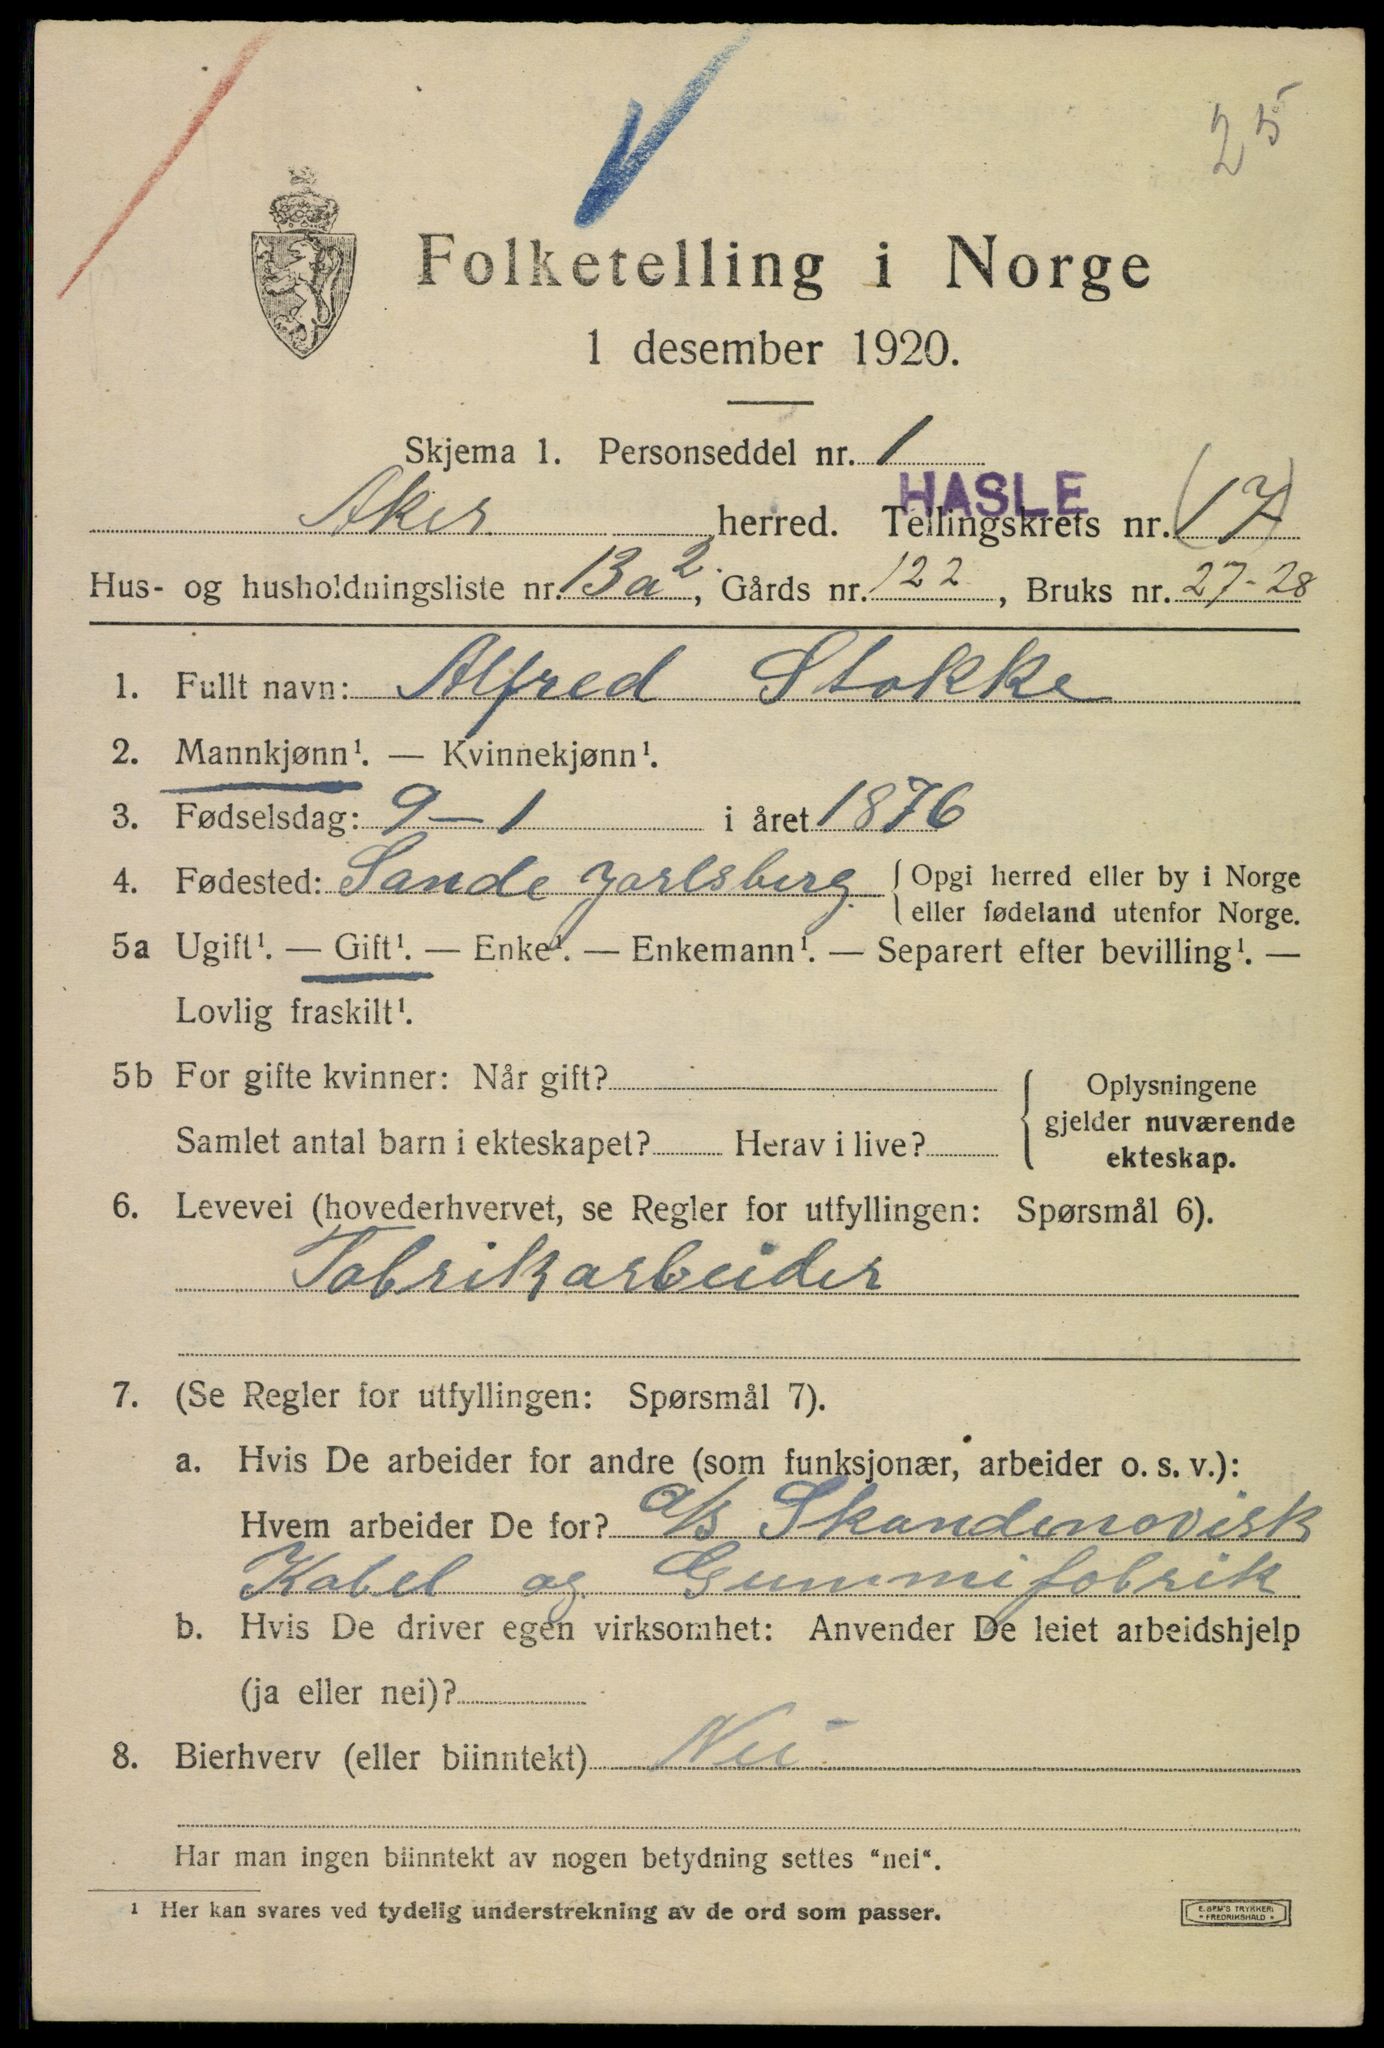 25
Folketelling i Norge
1 desember 1920.
Skjema 1. Personseddel nr. 1
HASLE
Aker herred. Tellingskrets nr. (17)
Hus- og husholdningsliste nr. 13a2, Gårds nr. 122, Bruks nr. 27-28
1. Fullt navn: Alfred Stokke
2. Mannkjønn¹. — Kvinnekjønn¹.
3. Fødselsdag: 9-1 i året 1876
4. Fødested: Sande Jarlsberg. { Opgi herred eller by i Norge
eller fødeland utenfor Norge.
5a Ugift¹. — Gift¹. — Enke¹. — Enkemann¹. — Separert efter bevilling¹. —
Lovlig fraskilt¹.
5b For gifte kvinner: Når gift? { Oplysningene
gjelder nuværende
Samlet antal barn i ekteskapet? Herav i live?
ekteskap.
6. Levevei (hovederhvervet, se Regler for utfyllingen: Spørsmål 6).
Fabrikarbeider
7. (Se Regler for utfyllingen: Spørsmål 7).
a. Hvis De arbeider for andre (som funksjonær, arbeider o. s. v.):
Hvem arbeider De for? a/s Skandinavisk
Kabel og Gummifabrik
b. Hvis De driver egen virksomhet: Anvender De leiet arbeidshjelp
(ja eller nei)?
8. Bierhverv (eller biinntekt) Nei
Har man ingen biinntekt av nogen betydning settes “nei“.
¹ Her kan svares ved tydelig understrekning av de ord som passer.
E. SEM'S TRYKKERI
• FREDRIKSHALD •